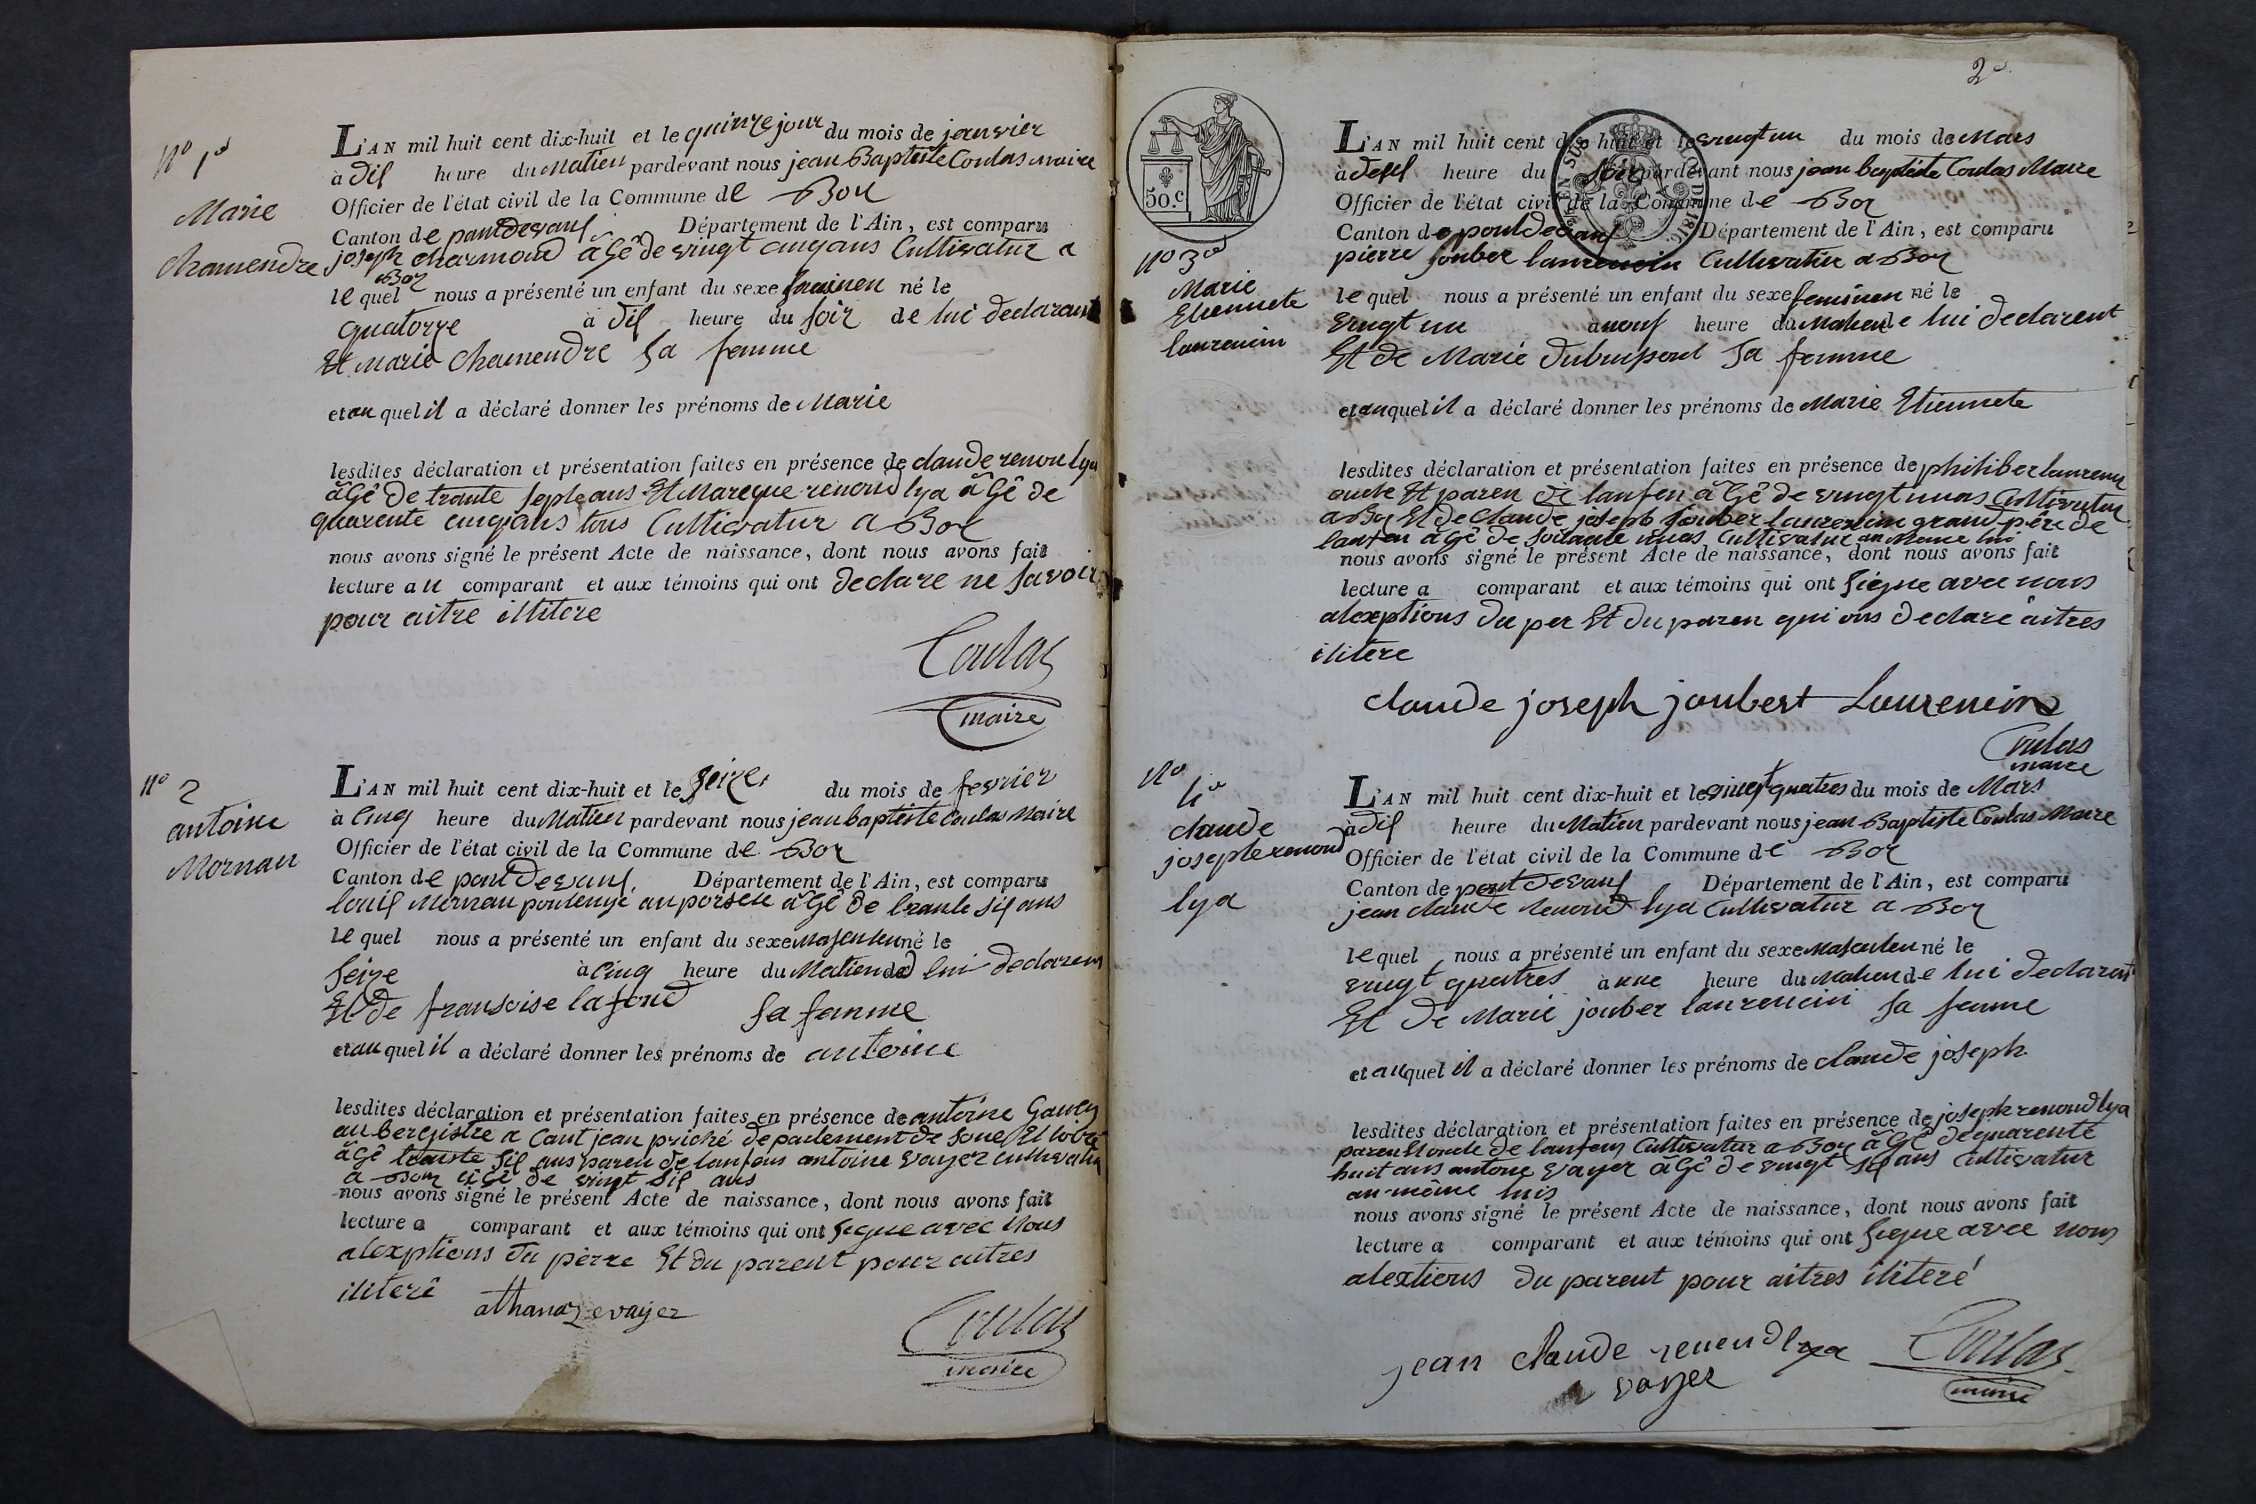 N° 1er
Marie
Chamendre
L'AN mil huit cent dix-huit et le quinze jour du mois de janvier
à dis heure du Matien pardevant nous jean Baptiste Coulas maire
Officier de l'état civil de la Commune de Boz
Canton de pont devans Département de l'Ain, est comparu
joseph charmond âgê de vingt cinq ans Cultivatur a
Boz
le quel nous a présenté un enfant du sexe né le
quatorze à dis heure du soir de lui declarant
Et Marie Chamendre sa femme
et au quel il a déclaré donner les prénoms de Marie
lesdites déclaration et présentation faites en présence de claude renou lya
âgê de trante septe ans Et Mareque renoud lya âgê de
quarente cinq ans tous Cultivatur a Boz
nous avons signé le présent Acte de naissance, dont nous avons fait
lecture au comparant et aux témoins qui ont declare ne savoir
pour aitre illitere
Coulas
maire
N° 2
antoine
Mornau
L'AN mil huit cent dix-huit et le seize du mois de fevrier
à Cinq heure du Matien pardevant nous jean baptiste Coulas Maire
Officier de l'état civil de la Commune de Boz
Canton de pont devans Département de l'Ain, est comparu
louis Mornau au âgê de trante sis ans
le quel nous a présenté un enfant du sexe masculen né le
seize à cinq heure du Matien de lui declaren
Et de fransoise lafond sa femme
et au quel il a déclaré donner les prénoms de antoine
lesdites déclaration et présentation faites en présence de antoine
aubergistre a Cant jean priché departement de sone Et loire
âgê trante sis ans paren de lanfens antoine vayer cultivatur
a Boz âgê de vint sis ans
nous avons signé le présent Acte de naissance, dont nous avons fait
lecture a comparant et aux témoins qui ont signe avec Nous
alexptions du pèrre Et du parent pour aitres
iliterê
athanaze vayer
Coulas
maire
2e
50.c
N° 3e
Marie
Etiennete
laurencin
L'AN mil huit cent dix-huit et le vingt un du mois de Mars
à desis heure du soir pardevant nous jean baptiste Coulas Maire
Officier de l'état civil de la Commune de Boz
Canton de pont devans Département de l'Ain, est comparu
pierre jouber laurencin Cultivatur a Boz
le quel nous a présenté un enfant du sexe feminen né le
vingt un a neuf heure du Matien de lui declarent
Et de Marie sa femme
et au quel il a déclaré donner les prénoms de Marie Etiennete
lesdites déclaration et présentation faites en présence de philiber laurencin
oncle Et paren de lanfen âgê de vingt nuas Cultivatur
a Boz Et de Claude joseph jouber laurencin grand père de
lanfen âgê de soisante nuas Cultivatur au meme lui
nous avons signé le présent Acte de naissance, dont nous avons fait
lecture a comparant et aux témoins qui ont signe avec nous
alexptions du per Et du paren qui ons declare aitres
ilitere
claude joseph joubert Laurencin
Coulas
maire
N°
4e
claude
josephe renoud
lya
L'AN mil huit cent dix-huit et le vingt quatres du mois de Mars
à dis heure du Matien pardevant nous jean Baptiste Coulas Maire
Officier de l'état civil de la Commune de Boz
Canton de pont devans Département de l'Ain, est comparu
jean claude renoud lya Cultivatur a Boz
le quel nous a présenté un enfant du sexe Masculen né le
vingt quatres à une heure du Matien de lui declarant
Et de Marie jouber laurencin sa femme
et au quel il a déclaré donner les prénoms de Claude joseph
lesdites déclaration et présentation faites en présence de joseph renoud lya
paren Et oncle de lanfens Cultivatur a Boz âgê de quarente
huit ans antone vayer âgê de vingt sis ans Cultivatur
au même luis
nous avons signé le présent Acte de naissance, dont nous avons fait
lecture a comparant et aux témoins qui ont signe avec nous
alextions du parent pour aitres iliteré
jean Claude renoud lya
vayer
Coulas
maire